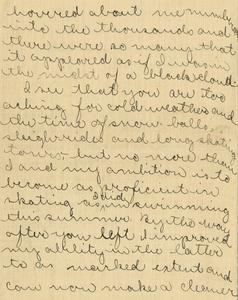 hovered about me numbering
into the thousands and
there were so many that
it appeared as if I was in
the midst of a black cloud.
I see that you are too
aching for cold weather and
the time of snow-balls
sleighrides and long skating
tours, but no more than
I and my ambition is to
become as proficient in
skating as I did in swimming
this summer. By the way
after you left I improved
my ability in the latter
to a marked extent and
can now make a cleaner